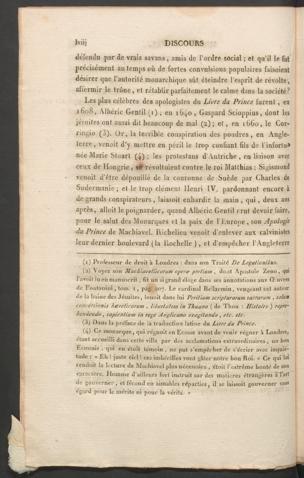 lviij DISCOURS
défendu par de vrais savans, amis de l'ordre social ; et qu'il le fut
précisément au temps où de fortes convulsions populaires faisoient
désirer que l'autorité monarchique sût éteindre l'esprit de révolte,
affermir le trône, et rétablir parfaitement le calme dans la société?
Les plus célèbres des apologistes du Livre du Prince furent, en
1608, Albéric Gentil (1), en 1640, Gaspard Scioppius, dont les
jésuites ont aussi dit beaucoup de mal (2); et, en 1660, le Cor-
ringio (3). Or, la terrible conspiration des poudres, en Angle-
terre, venoit d'y mettre en péril le trop confiant fils de l'infortu-
née Marie Stuart (4); les protestans d'Autriche, en liaison avec
ceux de Hongrie, se révoltoient contre le roi Matthias; Sigismond
venoit d'être dépouillé de la couronne de Suède par Charles de
Sudermanie; et le trop clément Henri IV, pardonnant encore à
de grands conspirateurs, laissoit enhardir la main qui, deux ans
après, alloit le poignarder, quand Albéric Gentil crut devoir faire,
pour le salut des Monarques et la paix de l'Europe, son Apologie
du Prince de Machiavel. Richelieu venoit d'enlever aux calvinistes
leur dernier boulevard (la Rochelle), et d'empêcher l'Angleterre
(1) Professeur de droit à Londres: dans son Traité De Legationibus.
(2) Voyez son Machiavellicorum operæ pretium, dont Apostole Zeno, qui
l'avoit lu en manuscrit, fit un si grand éloge dans ses annotations aux Œuvres
de Fontanini, tom. 1, pag. 207. Le cardinal Bellarmin, vengeant cet auteur
de la haine des Jésuites, louoit dans lui Peritiam scripturarum sacrarum, zelum
conversionis hæreticorum, libertatem in Thuano (de Thou, Historic) repre-
hendendo, sapientiam in rege Anglicano exagitando, etc. etc.
(3) Dans la préface de sa traduction latine du Livre du Prince.
(4) Ce monarque, qui régnoit en Ecosse avant de venir régner à Londres,
étant accueilli dans cette ville par des acclamations extraordinaires, un bon
Ecossois, qui en étoit témoin, ne put s'empêcher de s'écrier avec inquié-
tude: « Eh! juste ciel! ces imbécilles vont gâter notre bon Roi. » Ce qui lui
rendoit la lecture de Machiavel plus nécessaire, étoit l'extrême bonté de son
caractère. Homme d'ailleurs fort instruit sur des matières étrangères à l'art
de gouverner, et fécond en aimables réparties, il se laissoit gouverner sans
égard pour le mérite ni pour la vérité.